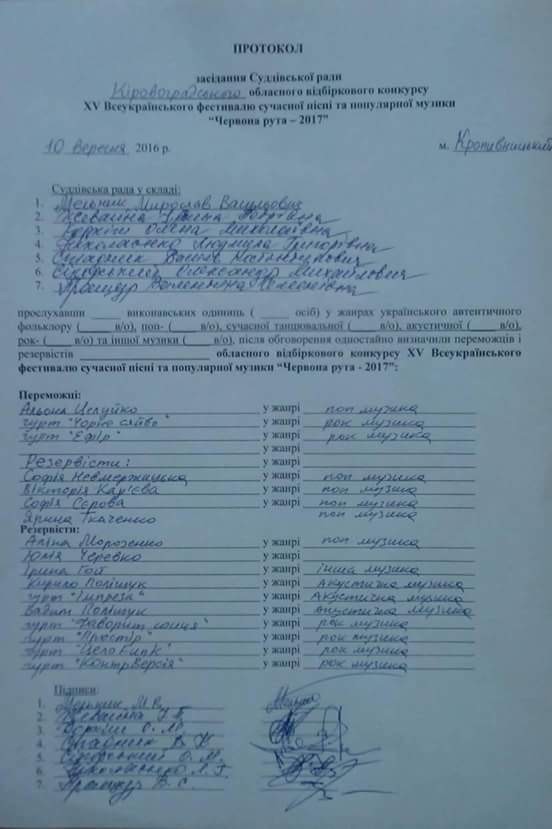 ПРОТОКОЛ
засідання Суддівської ради
Кіровоградського обласного відбіркового конкурсу
XV Всеукраїнського фестивалю сучасної пісні та популярної музики
"Червона рута – 2017"
10 вересня 2016 р. м. Кропивницький
Суддівська рада у складі:
1. Мельник Мирослав Васильович
2.
3. Олена Миколаївна
4. Ніколаєнко Людмила Григорівна
5. Василь
6. Олександр Михайлович
7. Валентина
прослухавши _____ виконавських одиниц (_____ осіб) у жанрах українського автентичного
фольклору (_____ в/о), поп- (_____ в/о), сучасної танцювальної (_____ в/о), акустичної (_____ в/о),
рок- (_____ в/о) та іншої музики (_____ в/о), після обговорення одностайно визначили переможців і
резервістів _____ обласного відбіркового конкурсу XV Всеукраїнського
фестивалю сучасної пісні та популярної музики "Червона рута - 2017":
Переможці:
Альона Целуйко у жанрі поп музика
гурт "Чорно сяйво" у жанрі рок музика
гурт "Ефір" у жанрі рок музика
у жанрі
Резервісти: у жанрі
Софія Невмержицька у жанрі поп музика
Вікторія Кар'єва у жанрі поп музика
Софія Сєрова у жанрі поп музика
Ярина Ткаченко поп музика
Резервісти:
Аліна Морозенко у жанрі поп музика
Юлія Черевко у жанрі
Ірина Гой у жанрі інша музика
Кирило Поліщук у жанрі Акустична музика
гурт "Імпреза" у жанрі Акустична музика
Вадим Поліщук у жанрі акустична музика
гурт "Фаворит конця" у жанрі рок музика
гурт "Простір" у жанрі рок музика
гурт у жанрі рок музика
гурт "Контрверсія" у жанрі рок музика
Підписи:
1. Мельник М.В.
2.
3. О. М.
4.
5. О. М.
6. Ніколаєнко Л. Г.
7. В. С.